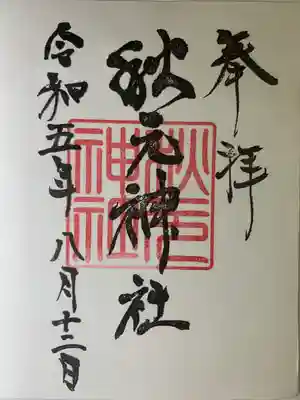 奉拝
秋元神社
秋元
神社
令和五年八月十二日